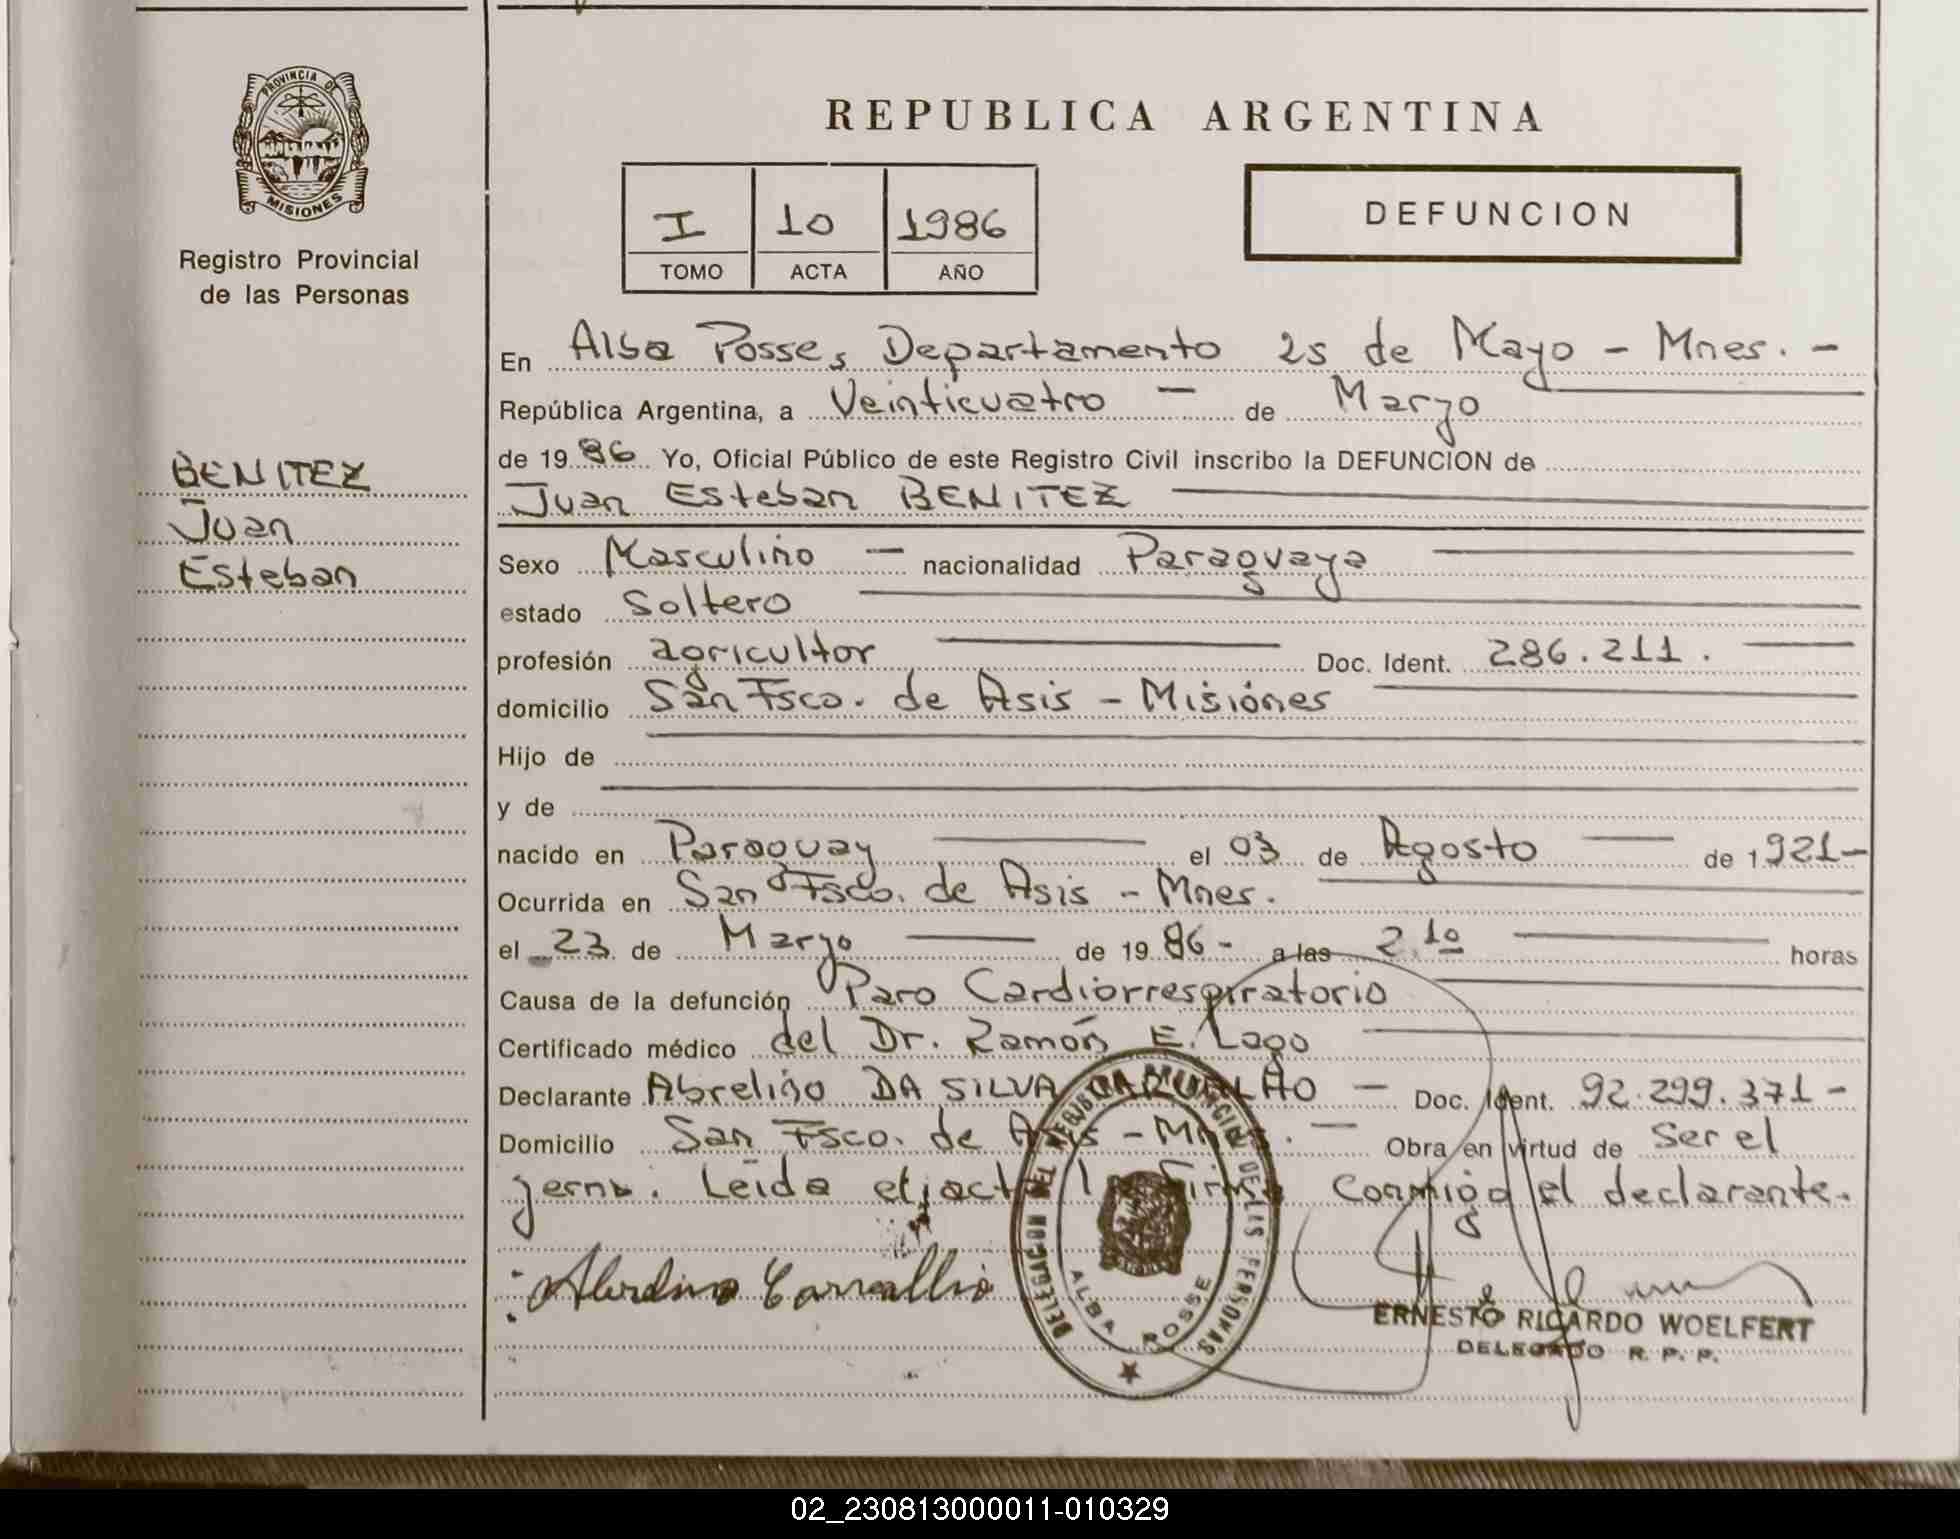 PROVINCIA DE
MISIONES
Registro Provincial
de las Personas
BENITEZ
Juan
Esteban
REPUBLICA ARGENTINA
I 10 1986
TOMO ACTA AÑO
DEFUNCION
En Alba Posse, Departamento 25 de Mayo - Mnes. -
República Argentina, a Veinticuatro — de Marzo
de 1986 Yo, Oficial Público de este Registro Civil inscribo la DEFUNCION de
Juan Esteban BENITEZ
Sexo Masculino — nacionalidad Paraguaya
estado Soltero
profesión agricultor Doc. Ident. 286.211.
domicilio San Fsco. de Asis - Misiones
Hijo de
y de
nacido en Paraguay el 03 de Agosto de 1921-
Ocurrida en San Fsco. de Asis - Mnes.
el 23 de Marzo de 1986- a las 2.10 horas
Causa de la defunción Paro Cardiorrespiratorio
Certificado médico del Dr. Ramón E. Lago
Declarante Abrelino DA SILVA — Doc. Ident. 92.299.371-
Domicilio San Fsco. de Asis - Mnes. — Obra en virtud de Ser el
yerno. Leida el acta la Firma Conmigo el declarante.
DELEGACION DEL REGISTRO PROVINCIAL DE LAS PERSONAS
ALBA POSSE
ERNESTO RICARDO WOELFERT
DELEGADO R. P. P.
02_230813000011-010329